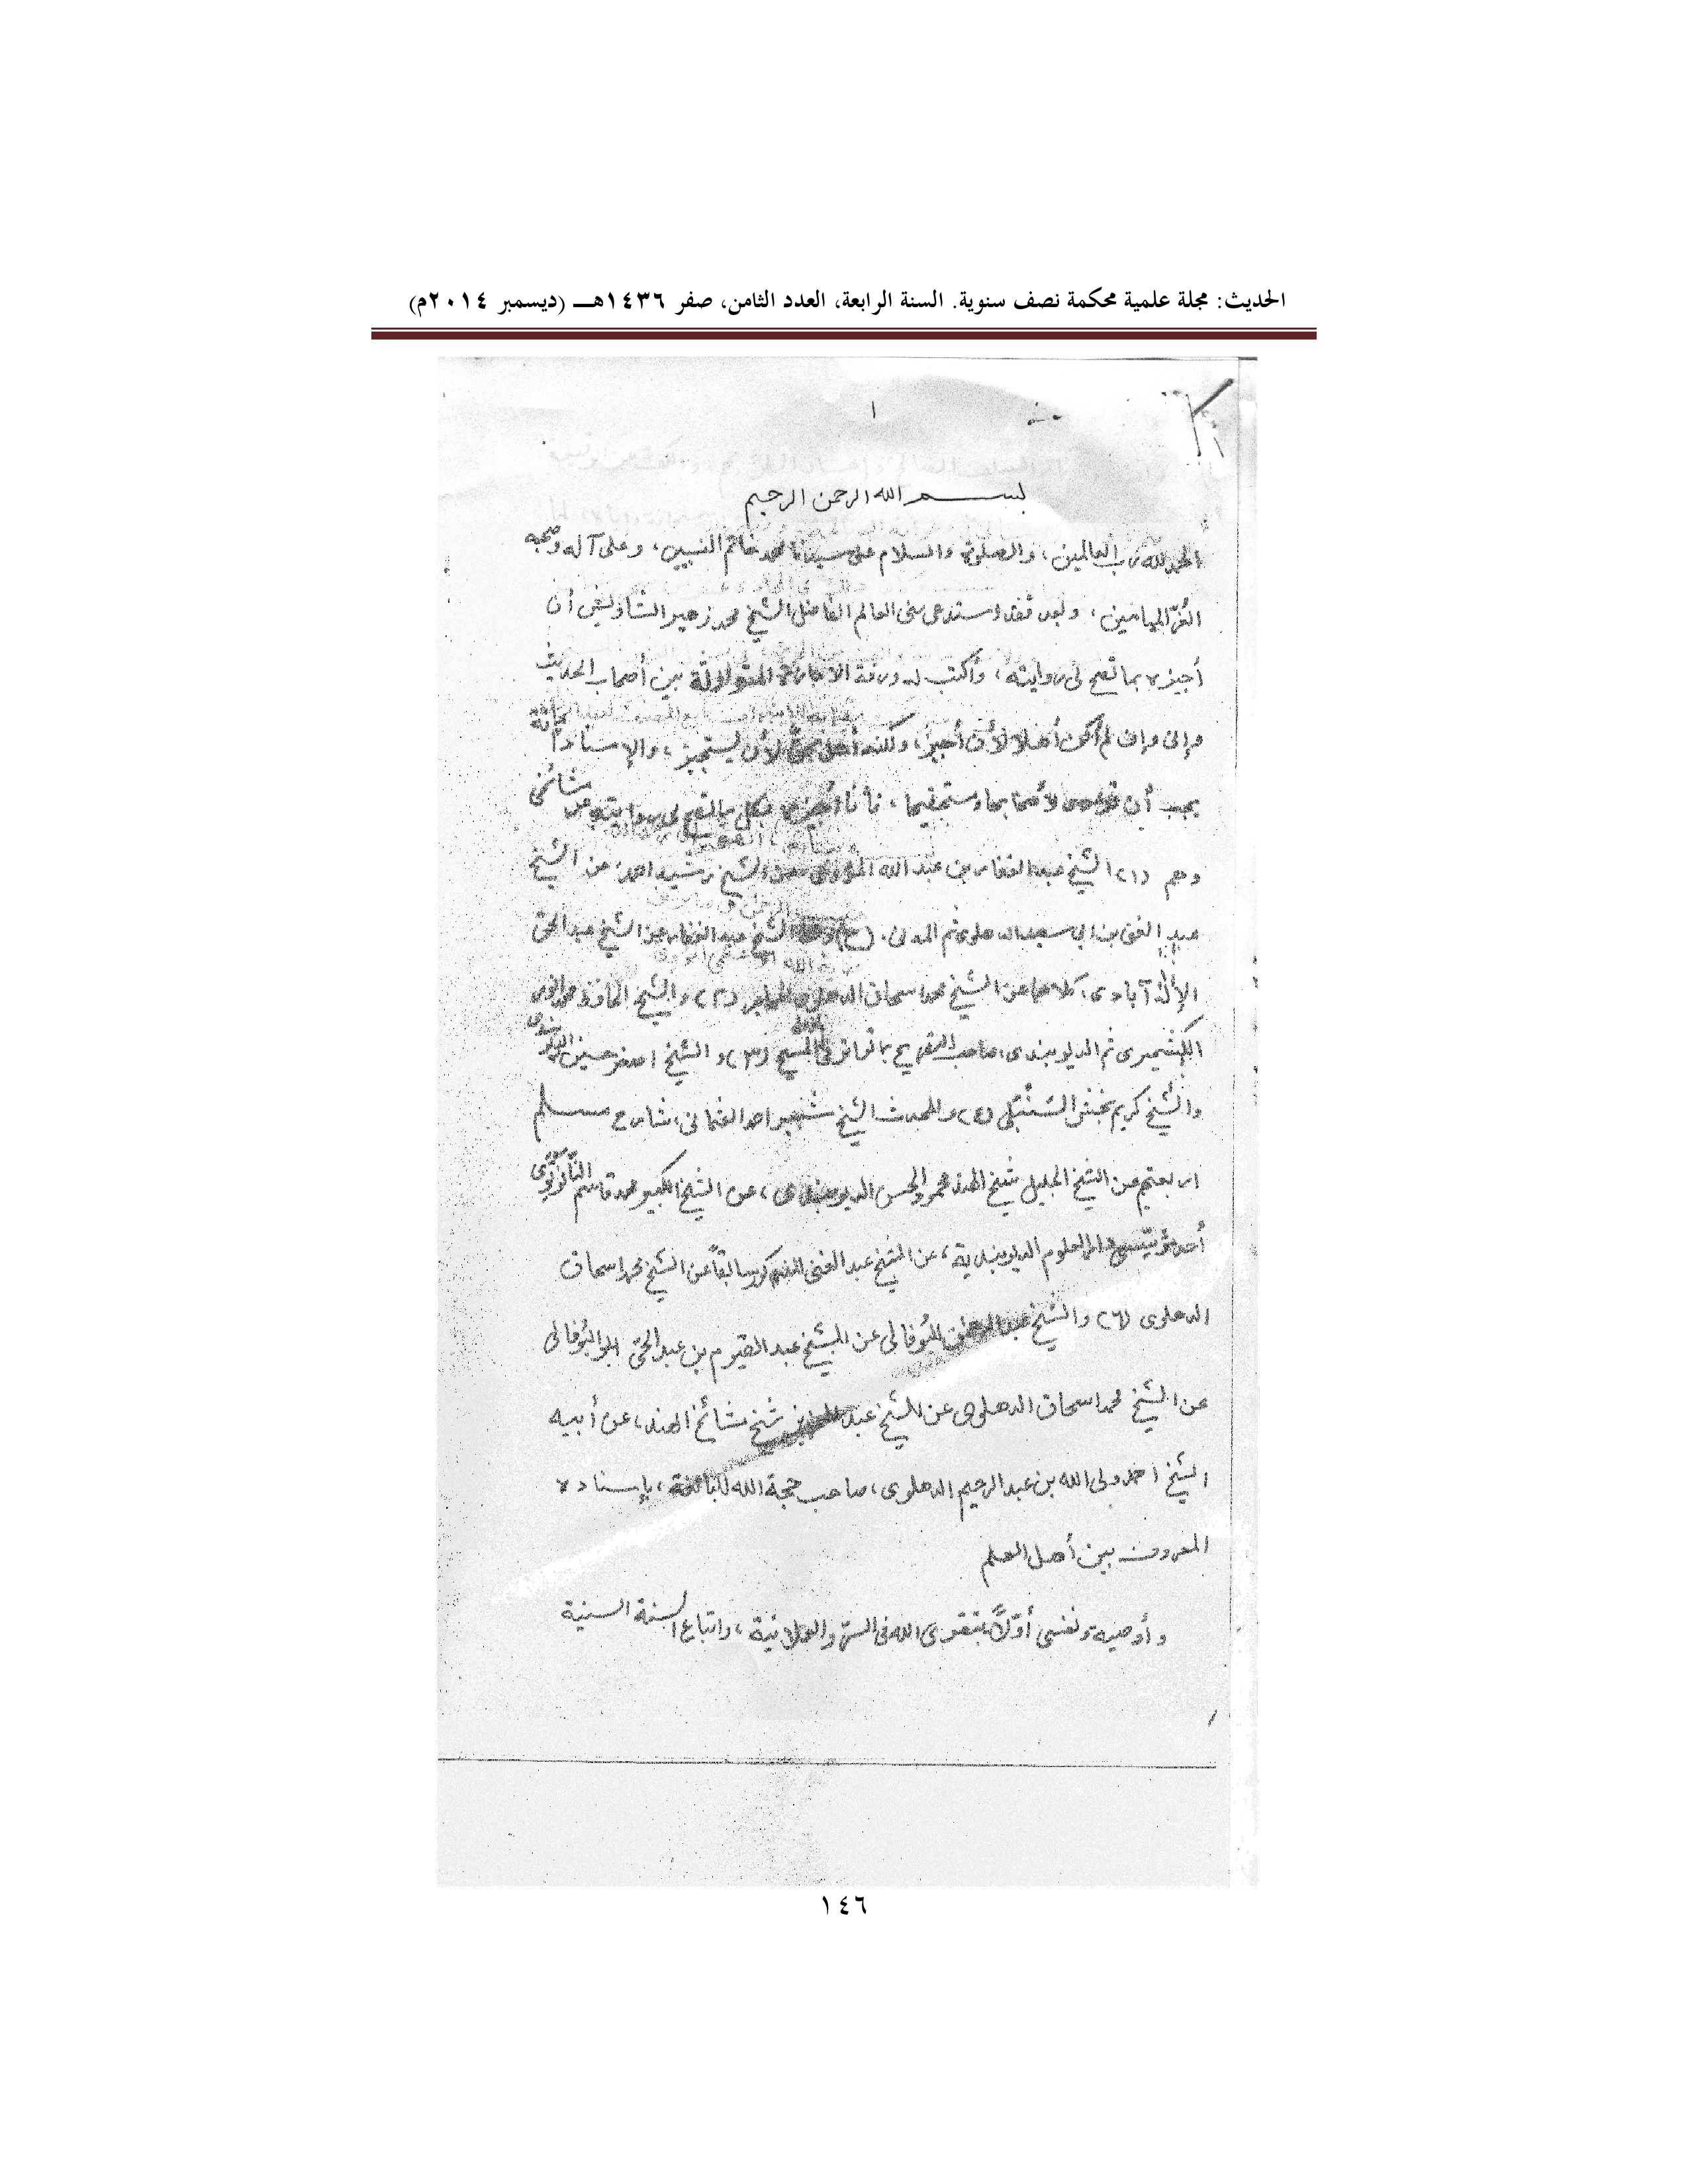 الحديث: مجلة علمية محكمة نصف سنوية. السنة الرابعة، العدد الثامن، صفر ١٤٣٦هـ (ديسمبر ٢٠١٤م)
١
بسم الله الرحمن الرحيم
الحمد لله رب العالمين، والصلوة والسلام على سيدنا محمد خاتم النبيين، وعلى آله وصحبه
الغُرّ الميامين، وبعد فقد استدعى منى العالم الفاضل الشيخ محمد زهير الشاويش أن
أجيزه بما تصح لى روايته، وأكتب له ورقة الاجازة المتداولة بين أصحاب الحديث
وإنى وإن لم أكن أهلا لأن أجيز، ولكنه أهل لأن يستجيز، والإسناد أمانة
يجب أن تؤدى لأصحابها ومستحقيها، فأنا أجيزه بكل ما تصح لى روايته عن مشائخى
وهم (١) الشيخ عبد الغفار بن عبد الله المؤوى عن الشيخ رشيد احمد عن الشيخ
عبد الغنى بن ابى سعيد الدهلوى ثم المدنى. (ح) الشيخ عبد الغفار عن الشيخ عبد الحق
الإلٰه آبادى، كلاهما عن الشيخ محمد اسحاق الدهلوى المهاجر (٢) والشيخ الحافظ محمد انور
الكشميرى ثم الديوبندى، صاحب التصريح بما تواتر فى المسيح (٣) والشيخ اصغر حسين الديوبندى
والشيخ كريم بخش السنبلى (٤) والمحدث الشيخ شبير احمد العثمانى، شارح مسلم
اربعتهم عن الشيخ الجليل شيخ الهند محمود الحسن الديوبندى، عن الشيخ الكبير محمد قاسم النانوتوى
أحد مؤسسى دار العلوم الديوبندية، عن الشيخ عبد الغنى المذكور سابقاً عن الشيخ محمد اسحاق
الدهلوى (٦) والشيخ عبد الرحمن البُوفالى عن الشيخ عبد القيوم بن عبد الحى البُوفالى
عن الشيخ محمد اسحاق الدهلوى عن الشيخ عبد العزيز شيخ مشائخ الهند، عن أبيه
الشيخ احمد ولى الله بن عبد الرحيم الدهلوى، صاحب حجة الله البالغة، بإسناده
المعروف بين أهل العلم
وأوصيه ونفسى أوّلاً بتقوى الله فى السرّ والعلانية، واتباع السنة السنية
١٤٦